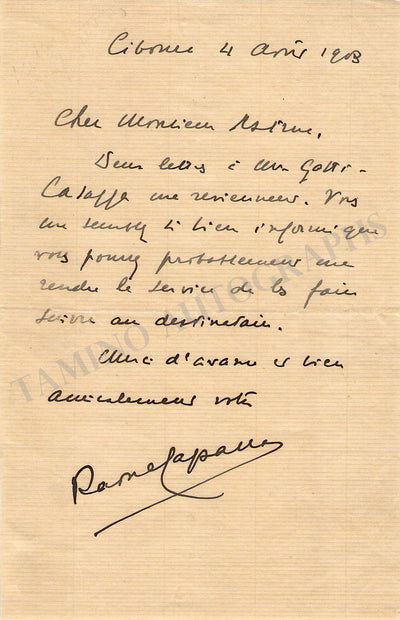 Ciboure 4 Août 1903
Cher Monsieur Astruc,
Deux lettres à Mr Gatti-
Casazza me reviennent. Vous
me semblez si bien informé que
vous pourrez probablement me
rendre le service de les faire
suivre au destinataire.
Merci d'avance et bien
amicalement votre
Raoul Laparra
TAMINO AUTOGRAPHS